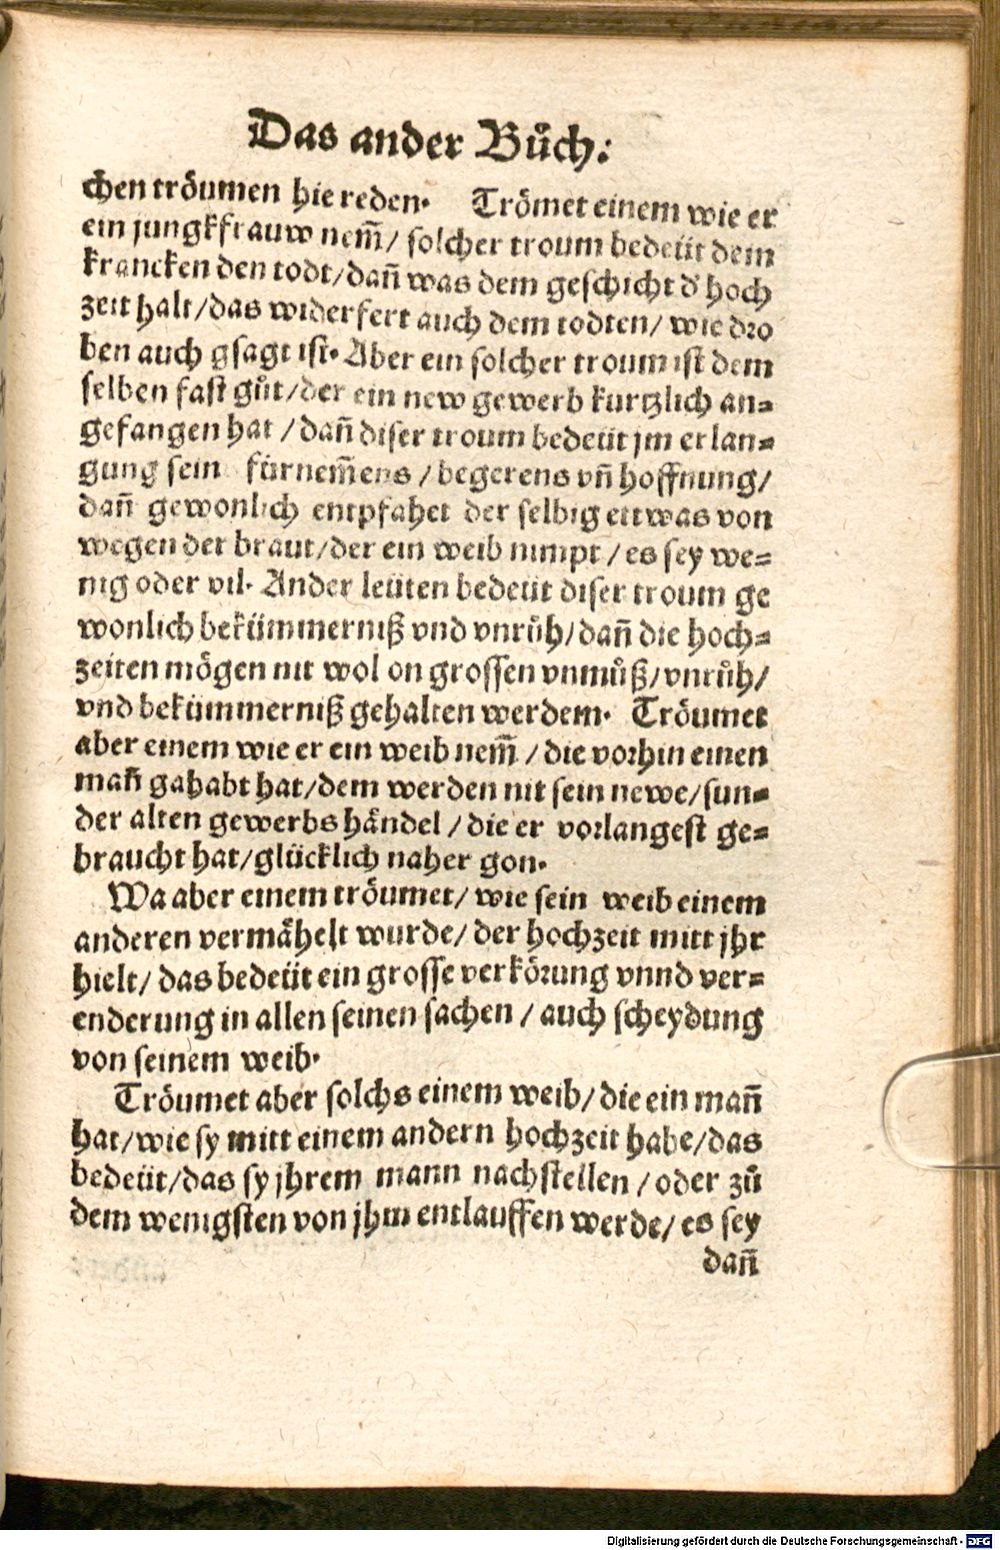 Das ander Bůch:
chen tröumen hie reden. Trömet einem wie er
ein jungkfrauw nem̃/ solcher troum bedeüt dem
krancken den todt/dañ was dem geschicht d' hoch
zeit halt/das widerfert auch dem todten/ wie dro
ben auch gsagt ist. Aber ein solcher troum ist dem
selben fast gůt/der ein new gewerb kurtzlich an⸗
gefangen hat /dañ diser troum bedeüt jm erlan⸗
gung sein fürnem̃ens /begerens vñ hoffnung/
dañ gewonlich entpfahet der selbig ettwas von
wegen der braut/der ein weib nimpt /es sey we⸗
nig oder vil. Ander leüten bedeüt diser troum ge
wonlich bekümmerniß vnd vnrůh/dañ die hoch⸗
zeiten mögen nit wol on grossen vnmůß/vnrůh/
vnd bekümmerniß gehalten werdem. Tröumet
aber einem wie er ein weib nem̃ /die vorhin einen
mañ gahabt hat/dem werden nit sein newe/sun⸗
der alten gewerbs håndel /die er vorlangest ge⸗
braucht hat/glücklich naher gon.
Wa aber einem tröumet/ wie sein weib einem
anderen vermåhelt wurde/ der hochzeit mitt jhr
hielt/ das bedeüt ein grosse verkörung vnnd ver⸗
enderung in allen seinen sachen /auch scheydung
von seinem weib.
Tröumet aber solchs einem weib/die ein mañ
hat/wie sy mitt einem andern hochzeit habe/das
bedeüt/das sy jhrem mann nachstellen /oder zů
dem wenigsten von jhm entlauffen werde/ es sey
dañ
Digitalisierung gefördert durch die Deutsche Forschungsgemeinschaft - DFG